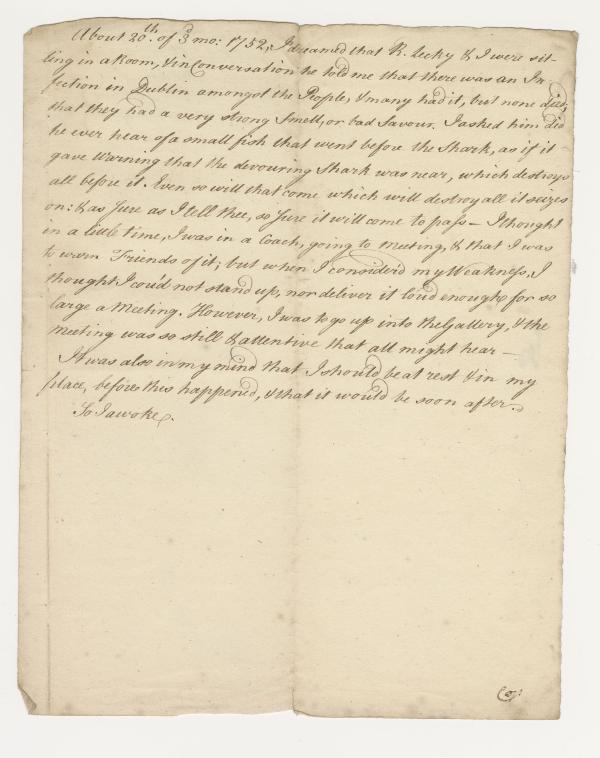 About 20th. of 3d mo: 1752, I dreamed that R. Lecky & I were sit-
ting in a Room, & in Conversation he told me that there was an In-
fection in Dublin amongst the People, & many had it, but none died,
that they had a very strong Smell, or bad Savour. I asked him did
he ever hear of a small fish that went before the Shark, as if it
gave Warning that the devouring Shark was near, which destroys
all before it. Even so will that come which will destroy all it seizes
on: & as sure as I tell thee, so sure it will come to pass — I thought
in a little time, I was in a Coach, going to Meeting, & that I was
to warn Friends of it; but when I consider'd my Weakness, I
thought I cou'd not stand up, nor deliver it loud enough for so
large a Meeting. However, I was to go up into the Gallery, & the
Meeting was so still & attentive that all might hear —
It was also in my mind that I should be at rest & in my
place, before this happened, & that it would be soon after.
So I awoke.